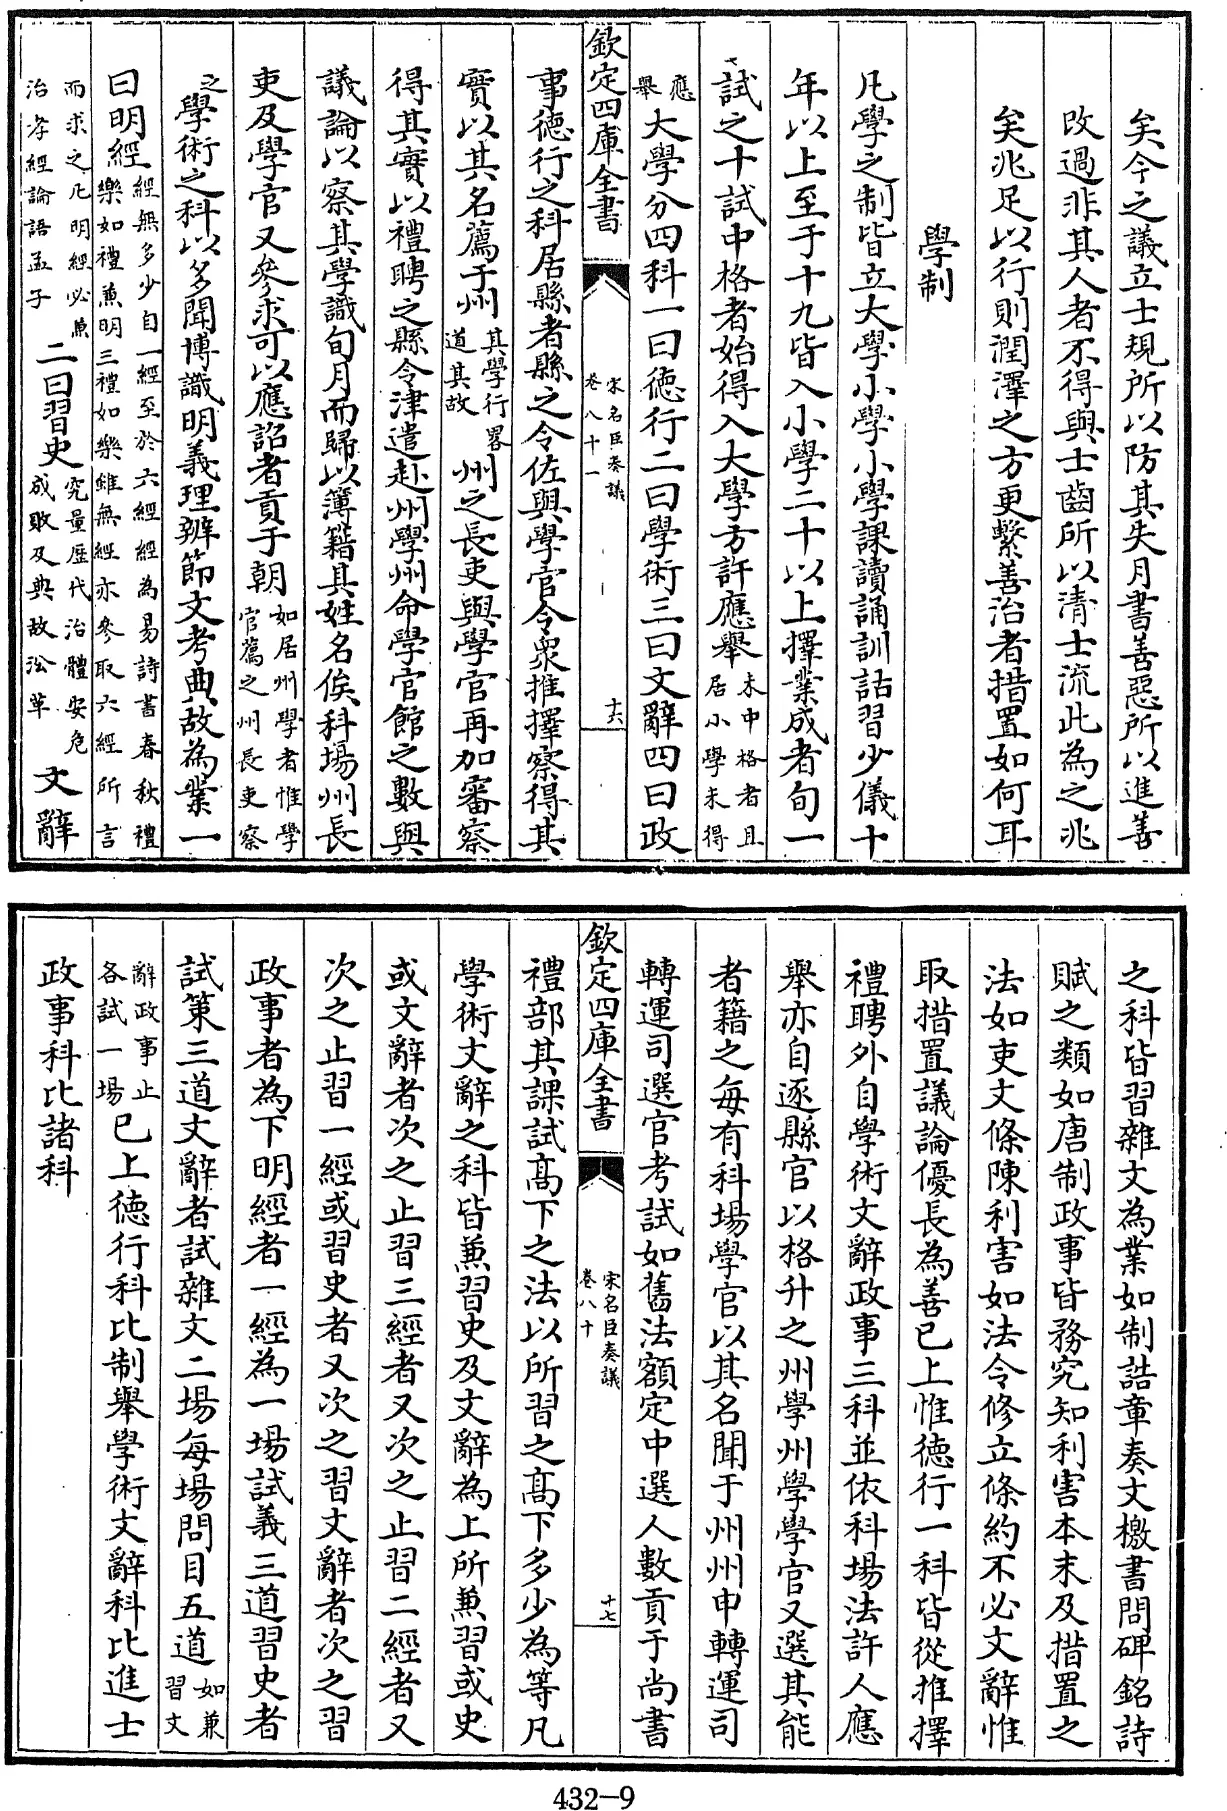 矣今之議立士規所以防其失月書善惡所以進善
改過非其人者不得與士齒所以清士流此為之兆
矣兆足以行則潤澤之方更繫善治者措置如何耳
學制
凡學之制皆立大學小學小學課讀誦訓詁習少儀十
年以上至于十九皆入小學二十以上擇業成者旬一
試之十試中格者始得入大學方許應舉未中格者且
居小學未得
應
舉大學分四科一曰徳行二曰學術三曰文辭四曰政
欽定四庫全書
宋名臣奏議
卷八十一
十六
事徳行之科居縣者縣之令佐與學官令衆推擇察得其
實以其名薦于州其學行畧
道其故州之長吏與學官再加審察
得其實以禮聘之縣令津遣赴州學州命學官館之數與
議論以察其學識旬月而歸以簿籍其姓名俟科場州長
吏及學官又參求可以應詔者貢于朝如居州學者惟學
官薦之州長吏察
之學術之科以多聞博識明義理辨節文考典故為業一
曰明經經無多少自一經至於六經經為易詩書春秋禮
樂如禮兼明三禮如樂雖無經亦參取六經所言
而求之凡明經必兼
治孝經論語孟子二曰習史究量歴代治體安危
成敗及典故沿革文辭
之科皆習雜文為業如制誥章奏文檄書問碑銘詩
賦之類如唐制政事皆務究知利害本末及措置之
法如吏文條陳利害如法令修立條約不必文辭惟
取措置議論優長為善已上惟徳行一科皆從推擇
禮聘外自學術文辭政事三科並依科場法許人應
舉亦自逐縣官以格升之州學州學學官又選其能
者籍之每有科場學官以其名聞于州州申轉運司
轉運司選官考試如舊法額定中選人數貢于尚書
欽定四庫全書
宋名臣奏議
卷八十
十七
禮部其課試髙下之法以所習之髙下多少為等凡
學術文辭之科皆兼習史及文辭為上所兼習或史
或文辭者次之止習三經者又次之止習二經者又
次之止習一經或習史者又次之習文辭者次之習
政事者為下明經者一經為一場試義三道習史者
試策三道文辭者試雜文二場每場問目五道如兼
習文
辭政事止
各試一場已上徳行科比制舉學術文辭科比進士
政事科比諸科
432-9